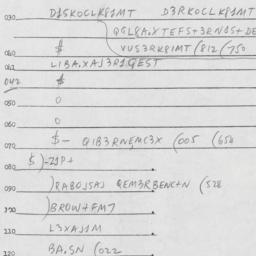 030 D1SKOCLK81MT D3RKOCLK81MT
QGL8A.XTEFS+3RN1S+DE
040 $ VUS3RK81MT (812 (750
041 L1BA.XAJ3R1QEST
042 $
050 0
060 0
070 $- Q1B3RNEMC3X (005 (650
080 $)-21P+
090 )RABOJSAJ QEM3RBENC+N (528
100 )BROW+FM7
110 L3XAJ1M
120 BA.SN (022